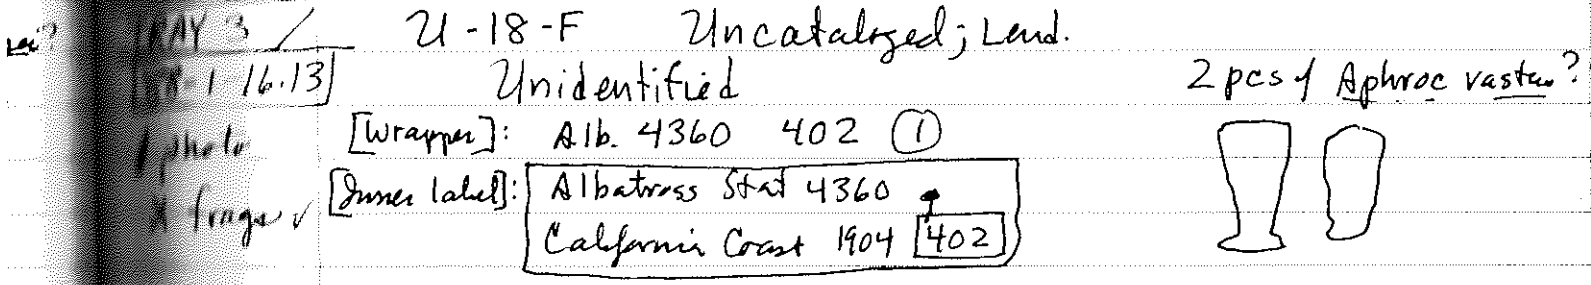 TRAY 3 / U-18-F Uncataloged; Lend.
16.13] Unidentified 2 pcs of Aphroc vastus?
1 photo [Wrapper]: Alb. 4360 402 ①
frags ✓ [Inner label]: Albatross Stat 4360
California Coast 1904 402